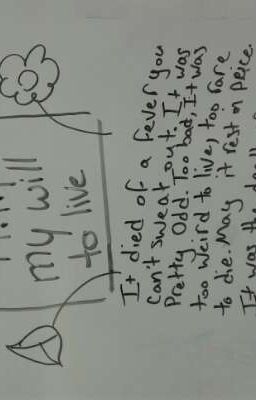 my will
to live
It died of a fever you
can't sweat out. It was
Pretty odd. Too bad, It was
too weird to live, too rare
to die. May it rest n peice.
It was the